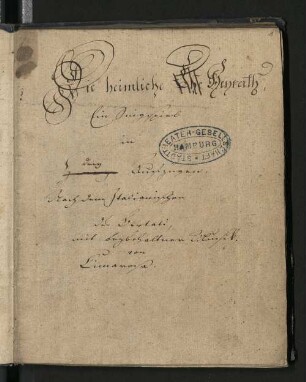 Die heimliche Heyrath
Ein Singspiel
in
drey Aufzügen.
Nach dem Italienischen
des Bertati,
mit beybehaltner Musik
von
Cimarosa
THEATER-GEBEL
HAMBURG
STADT